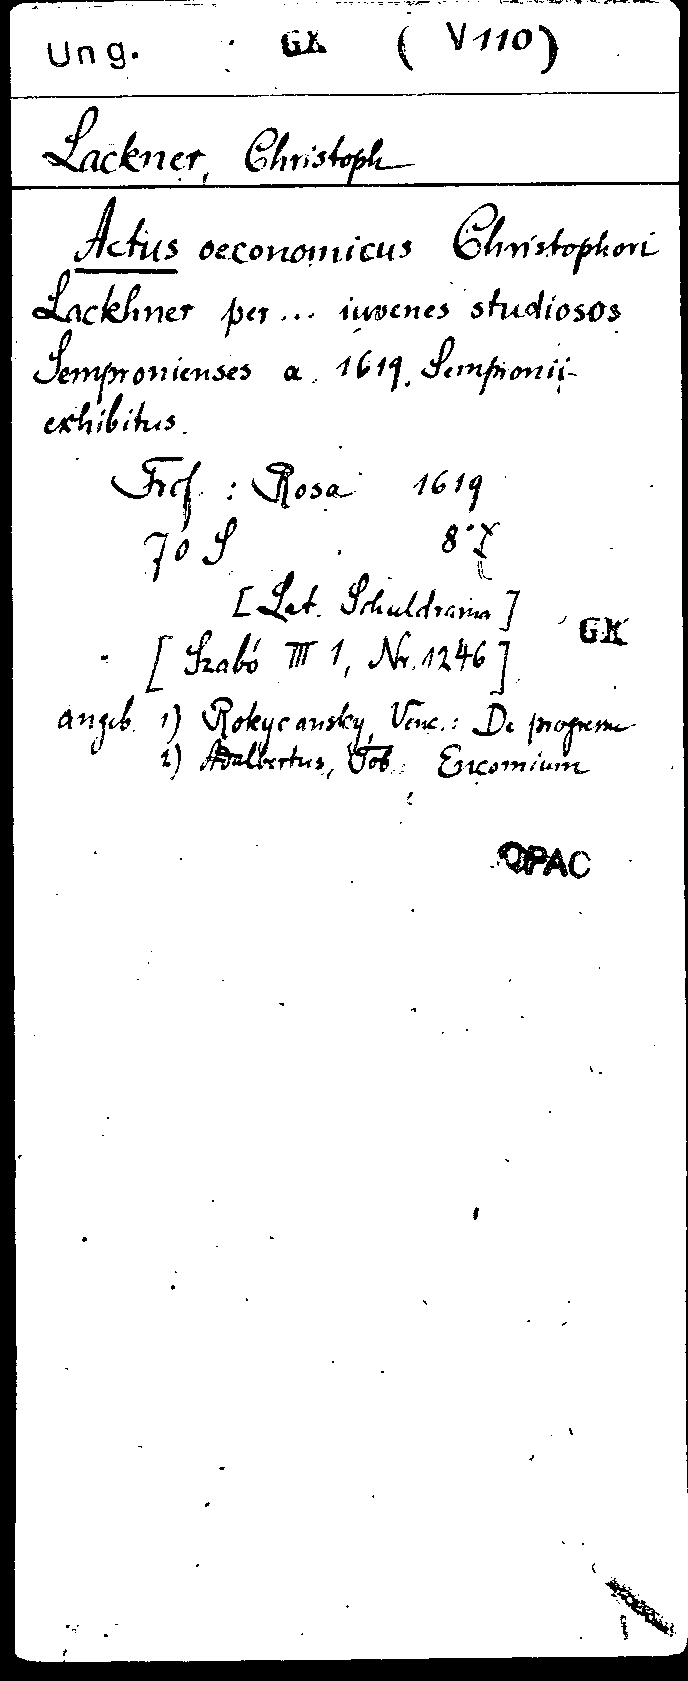 Ung. GK (V 110)
Lackner, Christoph
Actus oeconomicus Christophori
Lackhner per... iuvenes studiosos
Sempronienses a. 1619. Sempronii
exhibitus.
Frcf. : Rosa 1619
70 S 8°
[Lat. Schuldrama]
GK
[Szabó III 1, Nr. 1246]
angeb. 1) Rokycansky, Venc.: De
2) Adalbertus, Tob.: Encomium
OPAC